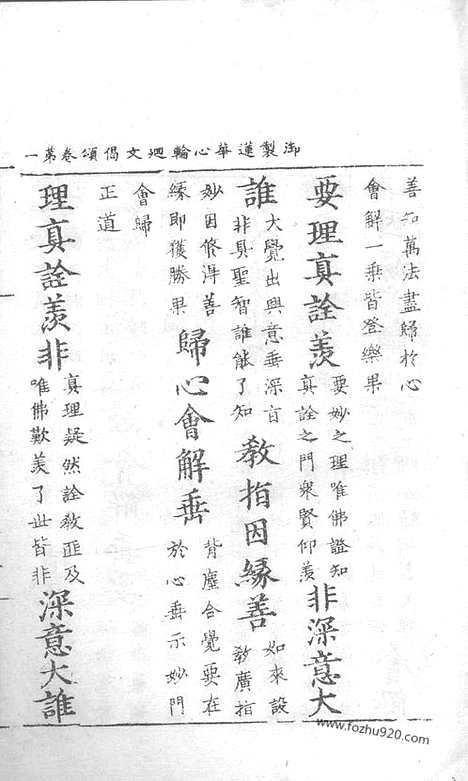 御製蓮華心輪廻文偈頌卷第一
善知萬法盡歸於心
會解一乘皆登樂果
要理真詮羨
要妙之理唯佛證知
真詮之門衆賢仰羨
非深意大
誰
大覺出興意垂深旨
非具聖智誰能了知
教指因緣善
如來設
教廣指
妙因修淂善
緣即獲勝果
歸心會解垂
背塵合覺要在
於心垂示妙門
會歸
正道
理真詮羨非
真理疑然詮教匪及
唯佛歎羨了世皆非
深意大誰
www.fozhu920.com